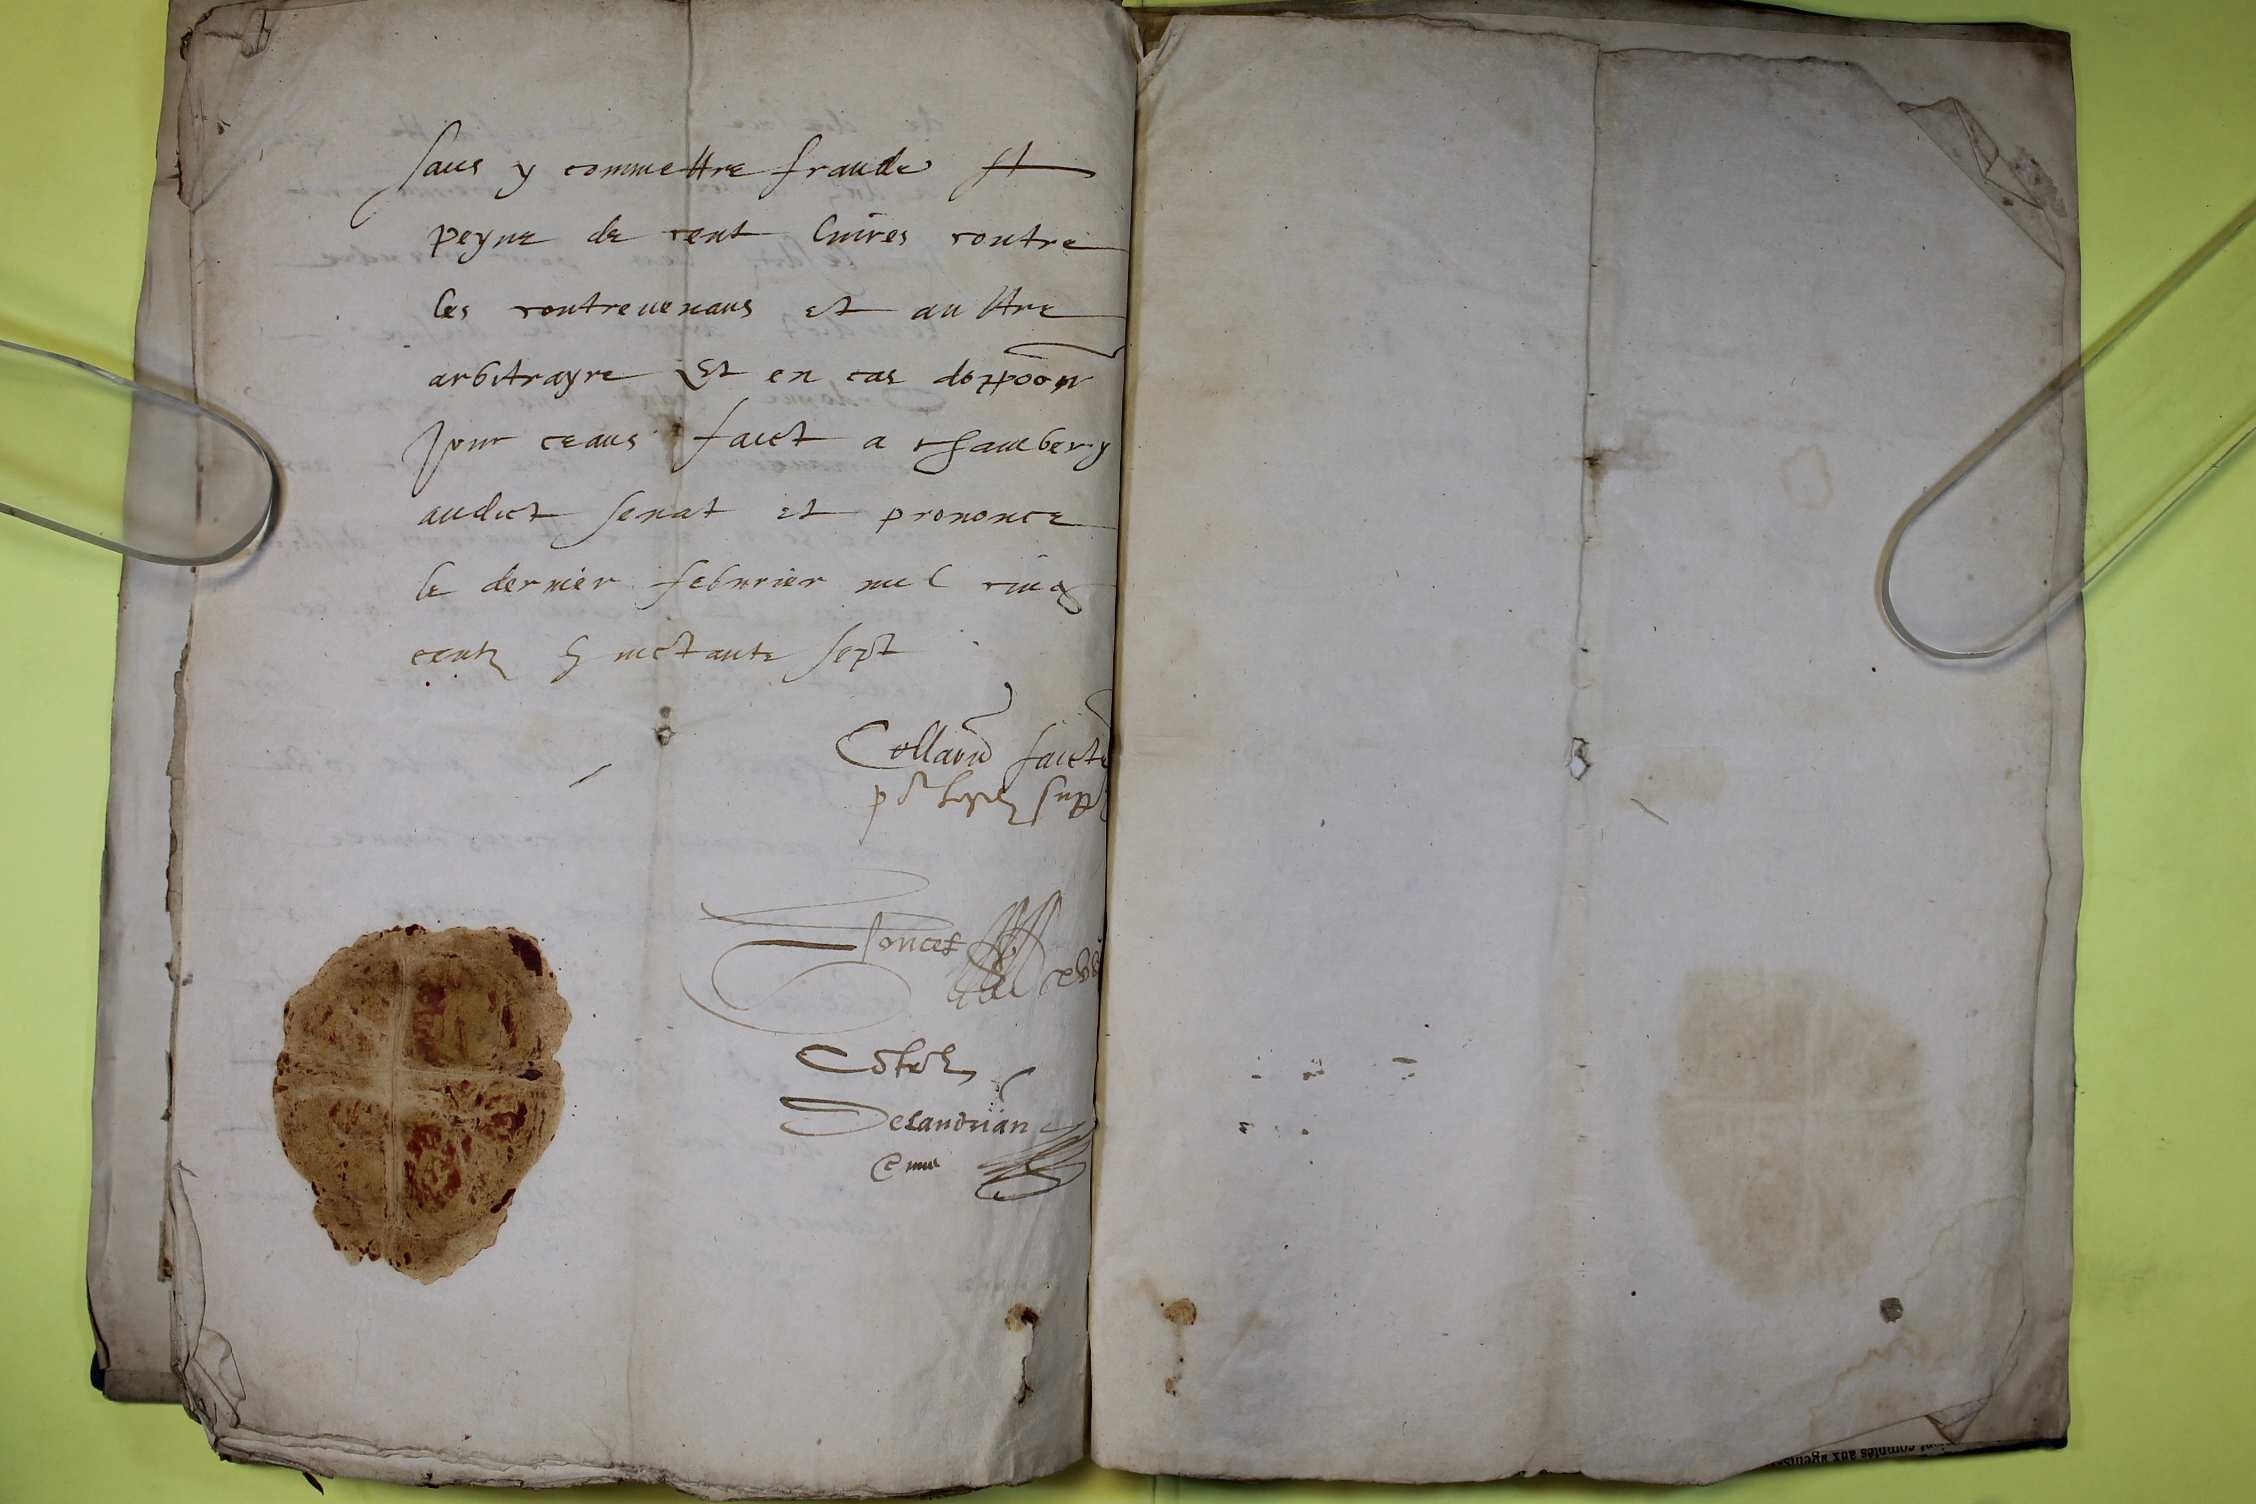 sans y commettre fraude Et
peyne de cent livres contre
les contrevenans et aultre
arbitrayre Et en cas doppoon
Jour ceans faict a chambery
audict senat et prononce
le dernier febvrier mil cinq
centz huictante sept
Collaon faicte
Poncet
Delandrian